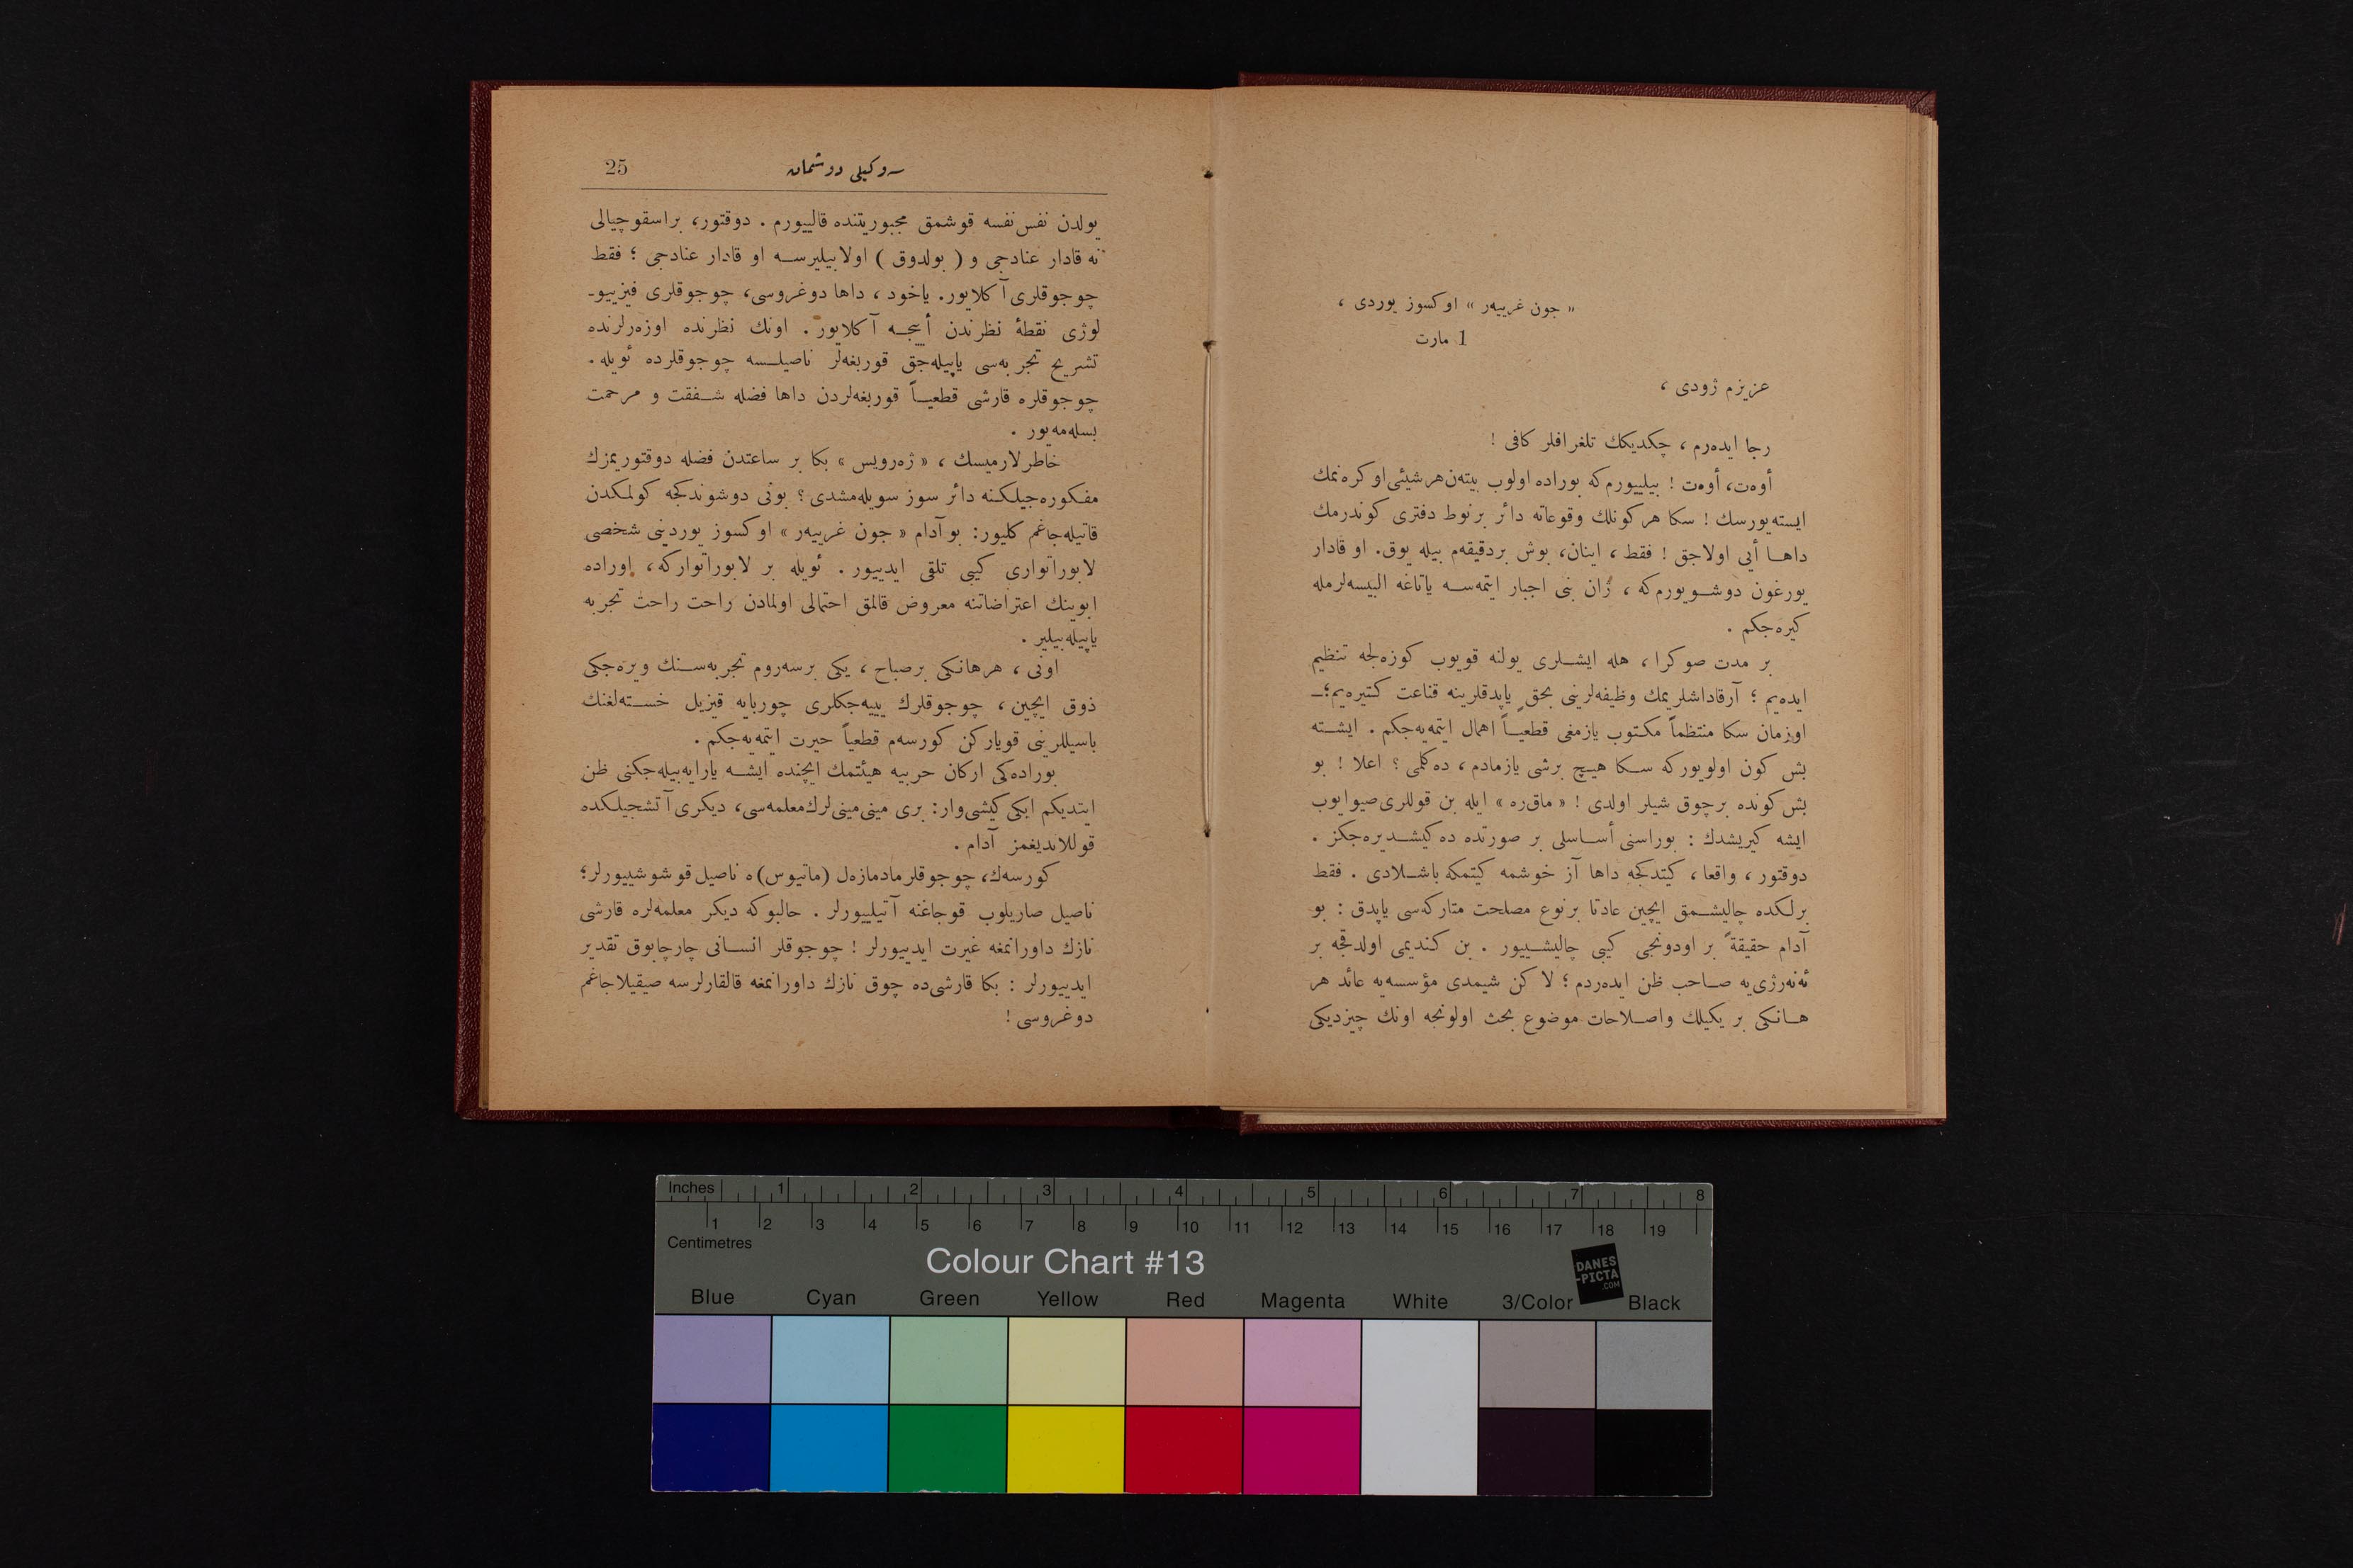 « جون غرييه‌ر » اوكسوز يوردى ،
1 مارت
عزيزم ژودى ،
رجا ايده‌رم ، چكديكك تلغرافلر كافى !
أوه‌ت، أوه‌ت ! بيلييورم كه بوراده اولوب بيته‌ن هر شيئى اوكره‌نمك
ايسته‌يورسك ! سكا هر كونلك وقوعاته دائر برنوط دفترى كوندرمك
داهــا أيى اولاجق ! فقط ، اينان، بوش بردقيقه‌م بيله يوق. او قادار
يورغون دوشــويورم كه ، ژان بنى اجبار ايتمه‌ســه ياتاغه البيسه‌لرمله
كيره‌جكم .
بر مدت صوكرا ، هله ايشــلرى يولنه قويوب كوزه‌لجه تنظيم
ايده‌يم ؛ آرقاداشلريمك وظيفه‌لرينى بحق ياپدقلرينه قناعت كتيره‌يم؛ــ
اوزمان سكا منتظماً مكتوب يازمغى قطعيــاً اهمال ايتمه‌يه‌جكم . ايشــته
بش كون اولويوركه ســكا هيــچ برشى يازمادم ، ده‌كلمى ؟ اعلا ! بو
بش كونده برچوق شيلر اولدى ! « ماق‌ره » ايله بن قوللرى صيوايوب
ايشه كيريشدك : بوراسنى أســاسلى بر صورتده ده‌كيشــديره‌جكز .
دوقتور ، واقعا ، كيتدكجه داها آز خوشمه كيتمكه باشــلادى . فقط
برلكده چاليشــمق ايچين عادتا برنوع مصلحت متاركه‌سى ياپدق : بو
آدام حقيقةً بر اودونجى كيبى چاليشــييور . بن كنديمى اولدقجه بر
ئه‌نه‌رژى‌يه صــاحب ظن ايده‌ردم ؛ لاكن شيمدى مؤسسه‌يه عائد هر
هــانكى بر يكيلك واصــلاحات موضوع بحث اولونجه اونك چيزديكى
سه‌وكيلى دوشمان
25
يولدن نفس نفسه قوشمق مجبوريتنده قالييورم . دوقتور، براسقوچيالى
نه قادار عنادجى و ( بولدوق ) اولابيليرســه او قادار عنادجى ؛ فقط
چوجوقلرى آكلايور. ياخود ، داها دوغروسى، چوجوقلرى فيزييو-
لوژى نقطهٔ نظرندن أييجــه آكلايور . اونك نظرنده اوزه‌رلرنده
تشريح تجربه‌سى ياپيله‌جق قوربغه‌لر ناصيلــسه چوجوقلرده ئويله .
چوجوقلره قارشى قطعيــاً قوربغه‌لردن داها فضله شــفقت و مرحمت
بسله‌مه‌يور .
خاطرلارميسك ، « ژه‌رويس » بكا بر ساعتدن فضله دوقتوريمزك
مفكوره‌جيلكنه دائر سوز سويله‌مشدى ؟ بونى دوشوندكجه كولمكدن
قاتيله‌جاغم كليور: بو آدام « جون غرييه‌ر » اوكسوز يوردينى شخصى
لابوراتوارى كيبى تلقى ايدييور . ئويله بر لابوراتواركه ، اوراده
ابوينك اعتراضاتنه معروض قالمق احتمالى اولمادن راحت راحت تجربه
ياپيله‌بيلير .
اونى ، هرهانكى برصباح ، يكى برسه‌روم تجربه‌ســنك ويره‌جكى
ذوق ايچين ، چوجوقلرك ييه‌جكلرى چوربايه قيزيل خســته‌لغنك
باسيللرينى قوياركن كورسه‌م قطعياً حيرت ايتمه‌يه‌جكم .
بوراده‌كى اركان حربيه هيئتمك ايچنده ايشــه يارايه‌بيله‌جكنى ظن
ايتديكم ايكى كيشى وار: برى مينى مينى لرك معلمه‌سى، ديكرى آتشجيلكده
قوللانديغمز آدام .
كورسه‌ك، چوجوقلر مادمازه‌ل (ماتيوس) ه ناصيل قوشوشييورلر؛
ناصيل صاريلوب قوجاغنه آتيلييورلر . حالبوكه ديكر معلمه‌لره قارشى
نازك داورانمغه غيرت ايدييورلر ! چوجوقلر انســانى چارچابوق تقدير
ايدييورلر : بكا قارشى‌ده چوق نازك داورانمغه قالقارلرسه صيقيلاجاغم
دوغروسى !
Inches 1 2 3 4 5 6 7 8
1 2 3 4 5 6 7 8 9 10 11 12 13 14 15 16 17 18 19
Centimetres
Colour Chart #13
DANES
-PICTA
.COM
Blue Cyan Green Yellow Red Magenta White 3/Color Black